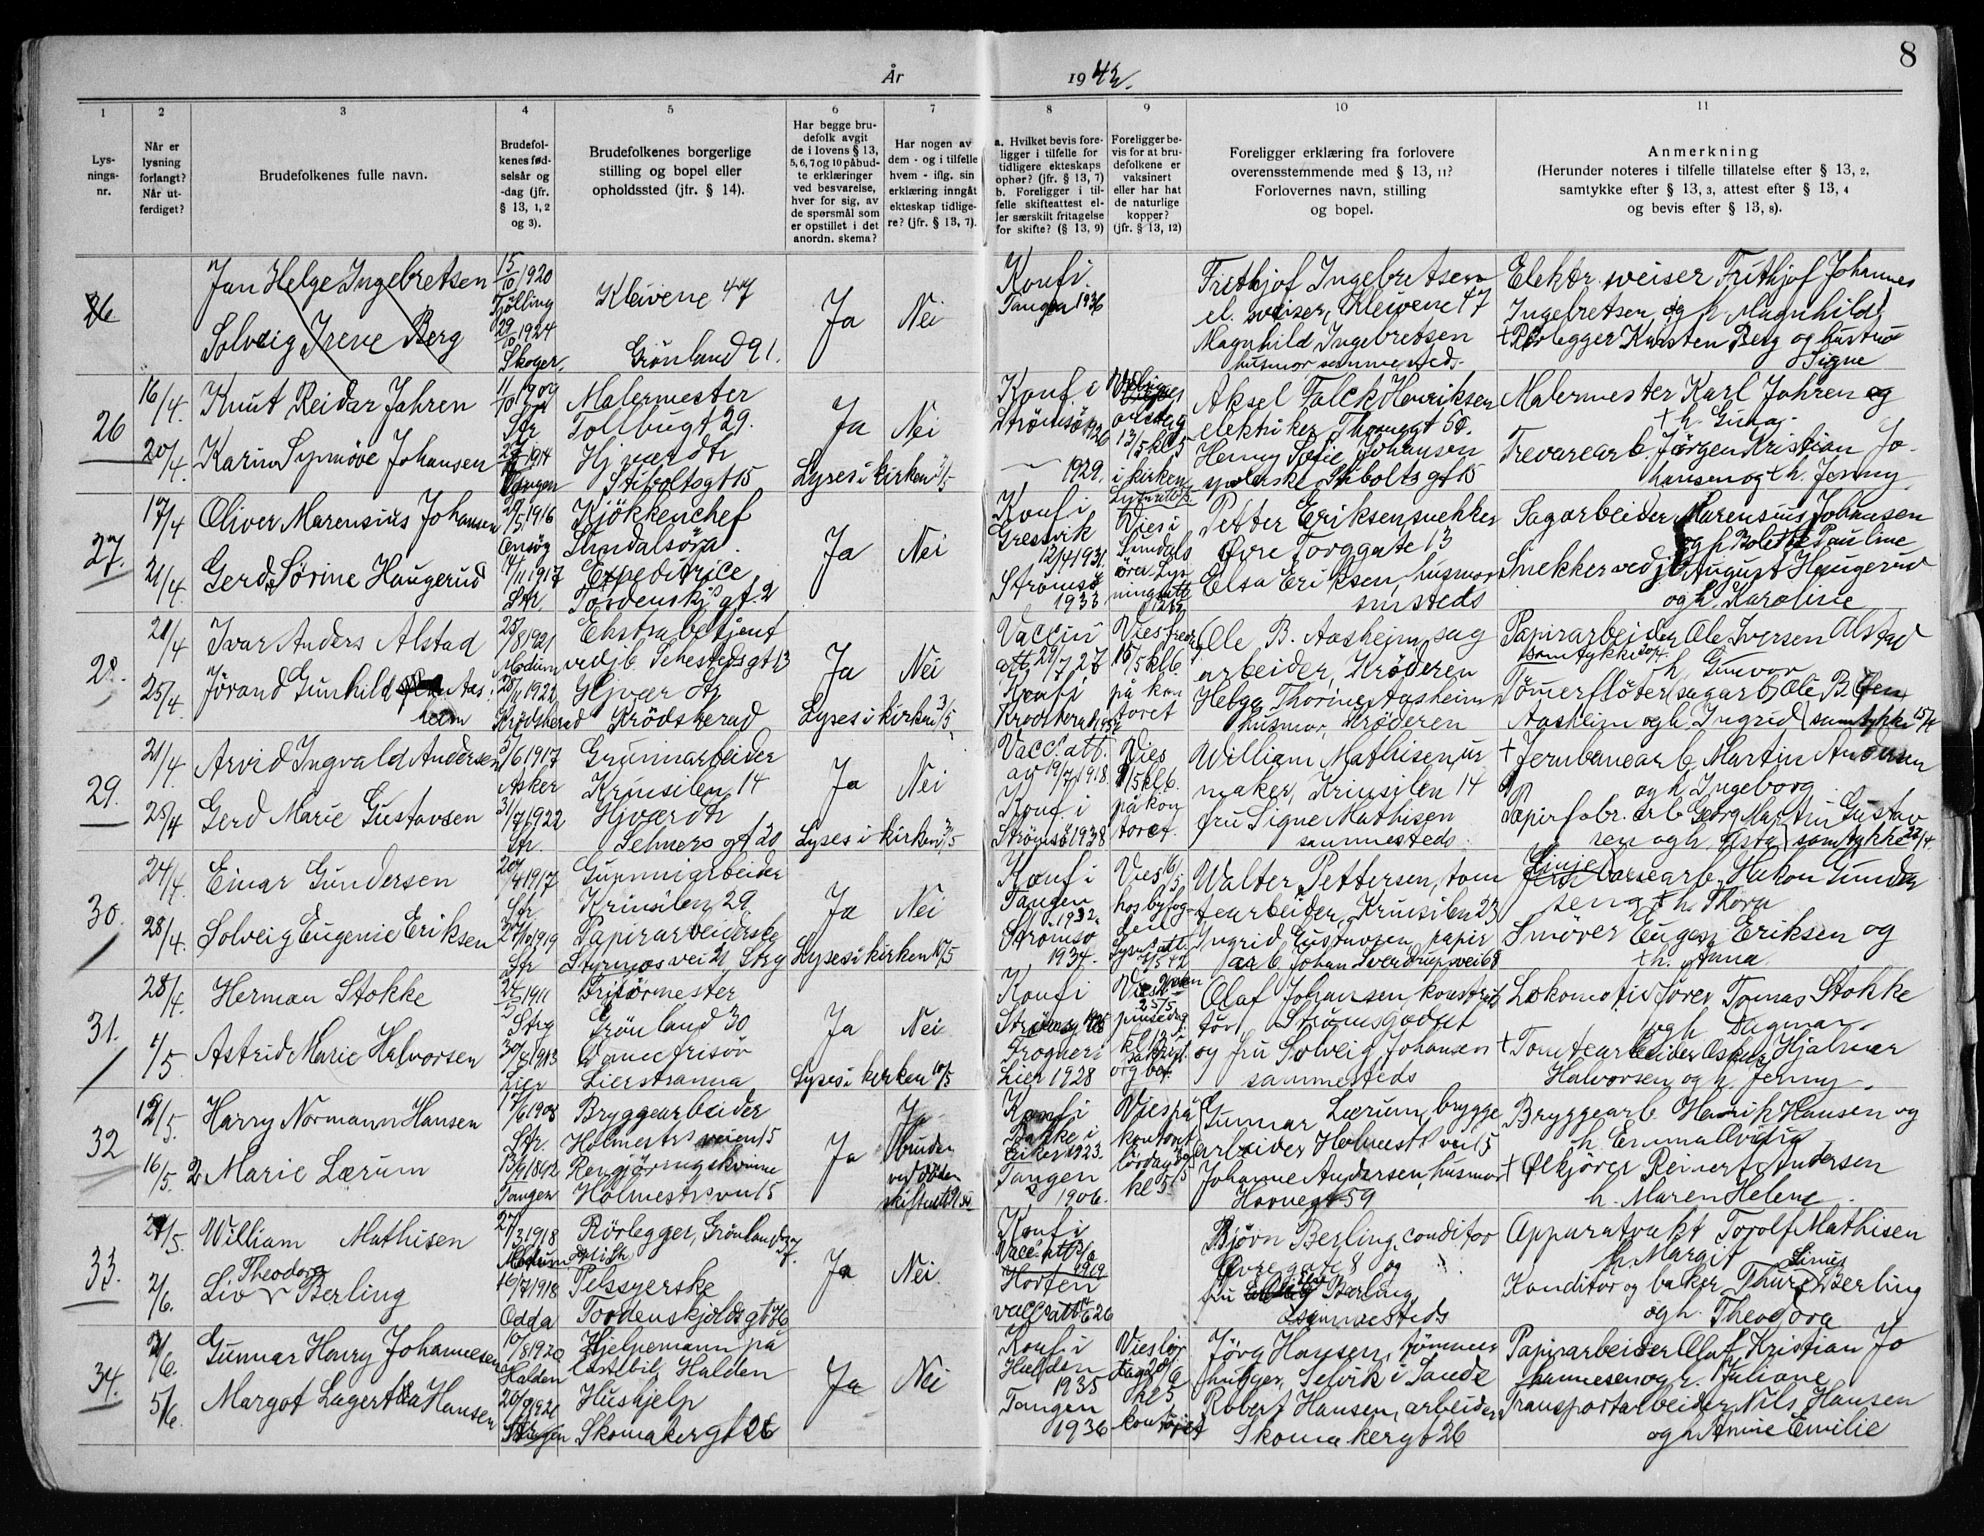 År 1942.
8
1 2 3 4 5 6 7 8 9 10 11
Lys-
nings-
nr.
Når er
lysning
forlangt?
Når ut-
ferdiget?
Brudefolkenes fulle navn.
Brudefol-
kenes fød-
selsår og
-dag (jfr.
§ 13, 1, 2
og 3).
Brudefolkenes borgerlige
stilling og bopel eller
opholdssted (jfr. § 14).
Har begge bru-
defolk avgit
de i lovens § 13,
5, 6, 7 og 10 påbud-
te erklæringer
ved besvarelse,
hver for sig, av
de spørsmål som
er opstillet i det
anordn. skema?
Har nogen av
dem - og i tilfelle
hvem - iflg. sin
erklæring inngått
ekteskap tidlige-
re? (jfr. § 13, 7).
a. Hvilket bevis fore-
ligger i tilfelle for
tidligere ekteskaps
ophør? (jfr. § 13, 7)
b. Foreligger i til-
felle skifteattest el-
ler særskilt fritagelse
for skifte? (§ 13, 9)
Foreligger be-
vis for at bru-
defolkene er
vaksinert
eller har hat
de naturlige
kopper?
(jfr. § 13, 12)
Foreligger erklæring fra forlovere
overensstemmende med § 13, 11?
Forlovernes navn, stilling
og bopel.
Anmerkning
(Herunder noteres i tilfelle tillatelse efter § 13, 2,
samtykke efter § 13, 3, attest efter § 13, 4
og bevis efter § 13, 8).
26
Jan Helge Ingebretsen
Solveig Irene Berg
15/10 1920
Tjølling
29/10 1924
Skoger.
Kleivene 47
Grønland 91.
Ja
Nei
Konfi.
Tangen 1936
Frithjof Ingebretsen
el. sveiser, Kleivene 47
Magnhild Ingebretsen
husmor sammested.
Elektr. sveiser Frithjof Johannes
Ingebretsen og h. Magnhild
+ Rørlegger Karsten Berg og hustru
Signe
26
16/4.
20/4.
Knut Reidar Jahren
Karin Synnøve Johansen
11/10 1909
Str
1914
Tangen
Malermester
Tollbugt 29.
Hj værdtr
Stiboltsgt 15
Ja
Nei
Lyses i kirken 3/5
Konf i
Strömsö 1926
1929.
13/5 kl 5
i kirken
Aksel Falck Henriksen
elektriker Thornegt 50.
Henny Sofie Johansen
spolerske Stibolts gt 15
Malermester Karl Jahren og
+ h. Gunda
Trevarearb. Jørgen Kristian Jo-
hansen og + h. Jenny
27.
17/4
21/4.
Oliver Marensius Johansen
Gerd Sørine Haugerud
29/5 1916
Onsöy
1/11 1917
Str
Kjökkenchef
Sundalsöra.
Expeditrice
Tordenskj.s gt. 2
Ja
Nei
Konfi
Gresvik
12/4 1931
Strömsö
1933
Vies i
Sundals
öra Lys
Petter Eriksen snekker
Øvre Torggate 13
Elsa Eriksen, husmor
smsteds
Sagarbeider Marensius Johansen
og h Bolette Pauline
Snekker ved jb August Haugerud
og h. Karoline
28.
21/4
25/4.
Ivar Anders Alstad
Jørand Gunhild Aas
heim
25/8 1921
Modum
1922
Krödsherad
Ekstrabetjent
ved jb Sehestedsgt 13
Hjvær dtr
Krödsherad
Ja
Nei
Lyses i kirken 3/5
Vaccin
att. 29/7 27
Konfi
Krödsherad 1937
Vies fredag
15/5 kl 6
på kon
toret
Ole B. Aasheim, sag
arbeider, Kröderen
Helga Thorine Aasheim
husmor, Kröderen
Papirarbeider Ole Iversen Alstad
samtykke 20/4. h. Gunvor
Tömerflöter (sagarb) Ole B.
Aasheim og h. Ingrid (samtykke 15/4
29.
21/4.
25/4
Arvid Ingvald Andersen
Gerd Marie Gustavsen
5/6 1917
Asker
31/7 1922
Str.
Gummiarbeider
Krinsilen 14
Hjværdtr
Lehners gt 20
Ja
Nei
Lyses i kirken 3/5
Vacc. att.
av 19/7 1918.
Konf i
Strömsö 1938
Vies
9/5 kl 6.
på kon
toret.
William Mathisen, ur
maker, Krinsilen 14
fru Signe Mathisen
sammesteds.
+ Jernbanearb Martin Andersen
og h. Ingeborg
Papirfabr. arb Georg Martin Gustav
sen og h. Asta (samtykke 22/4.
30.
24/4.
28/4.
Einar Gundersen
Solveig Eugenie Eriksen
20/4 1917
Str
1919
Str
Gummiarbeider
Krinsilen 29
Papirarbeiderske
Styrmosvei 21 Strg
Ja
Nei
Lyses i kirken 10/5
Konfi
Tangen
1932.
Strömsö
1934.
Vies 16/5
hos byfog
den
Lysn. att.
Walter Pettersen, tom
tearbeider, Krinsilen 23
Ingrid Gustavsen papir
arb. Johan Sverdrups vei 68
Linjevarsearb. Hakon Gunder
sen og + h. Thora
Smører Eugen Eriksen og
+ h. Anna
31.
28/4.
1/5
Herman Stokke
Astrid Marie Halvorsen
24/5 1911
Strg
30/8 1913
Lier
Frisörmester
Grönland 30
Damefrisör
Lierstranna
Ja
Nei
Lyses i kirken 10/5
Konfi
Frogner i
Lier 1928
Vies
25/5
pinsedag
kl 12.5
Olaf Johansen konstruk
tør Strömsgodset
og fru Solveig Johansen
sammesteds
Lokomotivfører Tomas Stokke
og h Dagmar.
+ Tomtearbeider Oskar Hjalmar
Halvorsen og h. Jenny.
32
12/5.
16/5.
Harry Normann Hansen
2) Marie Lærum
17/6 1908
Str.
13/9 1892
Tangen
Bryggearbeider
Holmestr.sveien 15
Rengjøringskvinne
Holmestr.svei 15
Ja
Ja
bruden
ved döden
Konfi
Bakke i
Eiker 1923.
Tangen
1906.
Vies på
kontoret
lördag
kl 5
Gunnar Lærum, brygge
arbeider Holmestr. vei 15
Johanne Andersen, husmor
Havnegt 59
Bryggearb. Henrik Hansen og
h. Emma Olvina
+ Ølkjører Reinert Andersen
h. Maren Helene.
33.
2/6.
William Mathisen
Theodora
Liv v Berling
27/3 1918
Modum
16/7 1918
Odda
Rörlegger, Grönland 37.
Pelssyerske
Tordenskjolds gt 76
Ja
Nei.
Konfi
Vacc. att
1919
Horten
vacc att 26
Bjørn Berling, conditor
Øvregate 8 og
fru Berling
sammesteds
Apparatvakt Torolf Mathisen
h. Margit
Linus
Konditor og baker Thure v Berling
og h. Theodora
34.
2/6.
5/6.
Gunnar Henry Johannesen
Margot Lagertha Hansen
10/8 1920
Halden
20/9 1920
Tangen
Hjelpemann på
lastebil, Halden
Hushjelp
Skomakergt 26
Ja
Nei
Konf i
Halden
1935
Tangen
1936
Vies lør
dag 20/6
kl 5
kontoret
Jörg Hansen, tömmer
hugger, Selvik i Sande
Robert Hansen, arbeider
Skomakergt 26
Papirarbeider Olaf Kristian Jo
hannesen og h. Juliane
Transportarbeider Nils Hansen
og h Anine Emilie